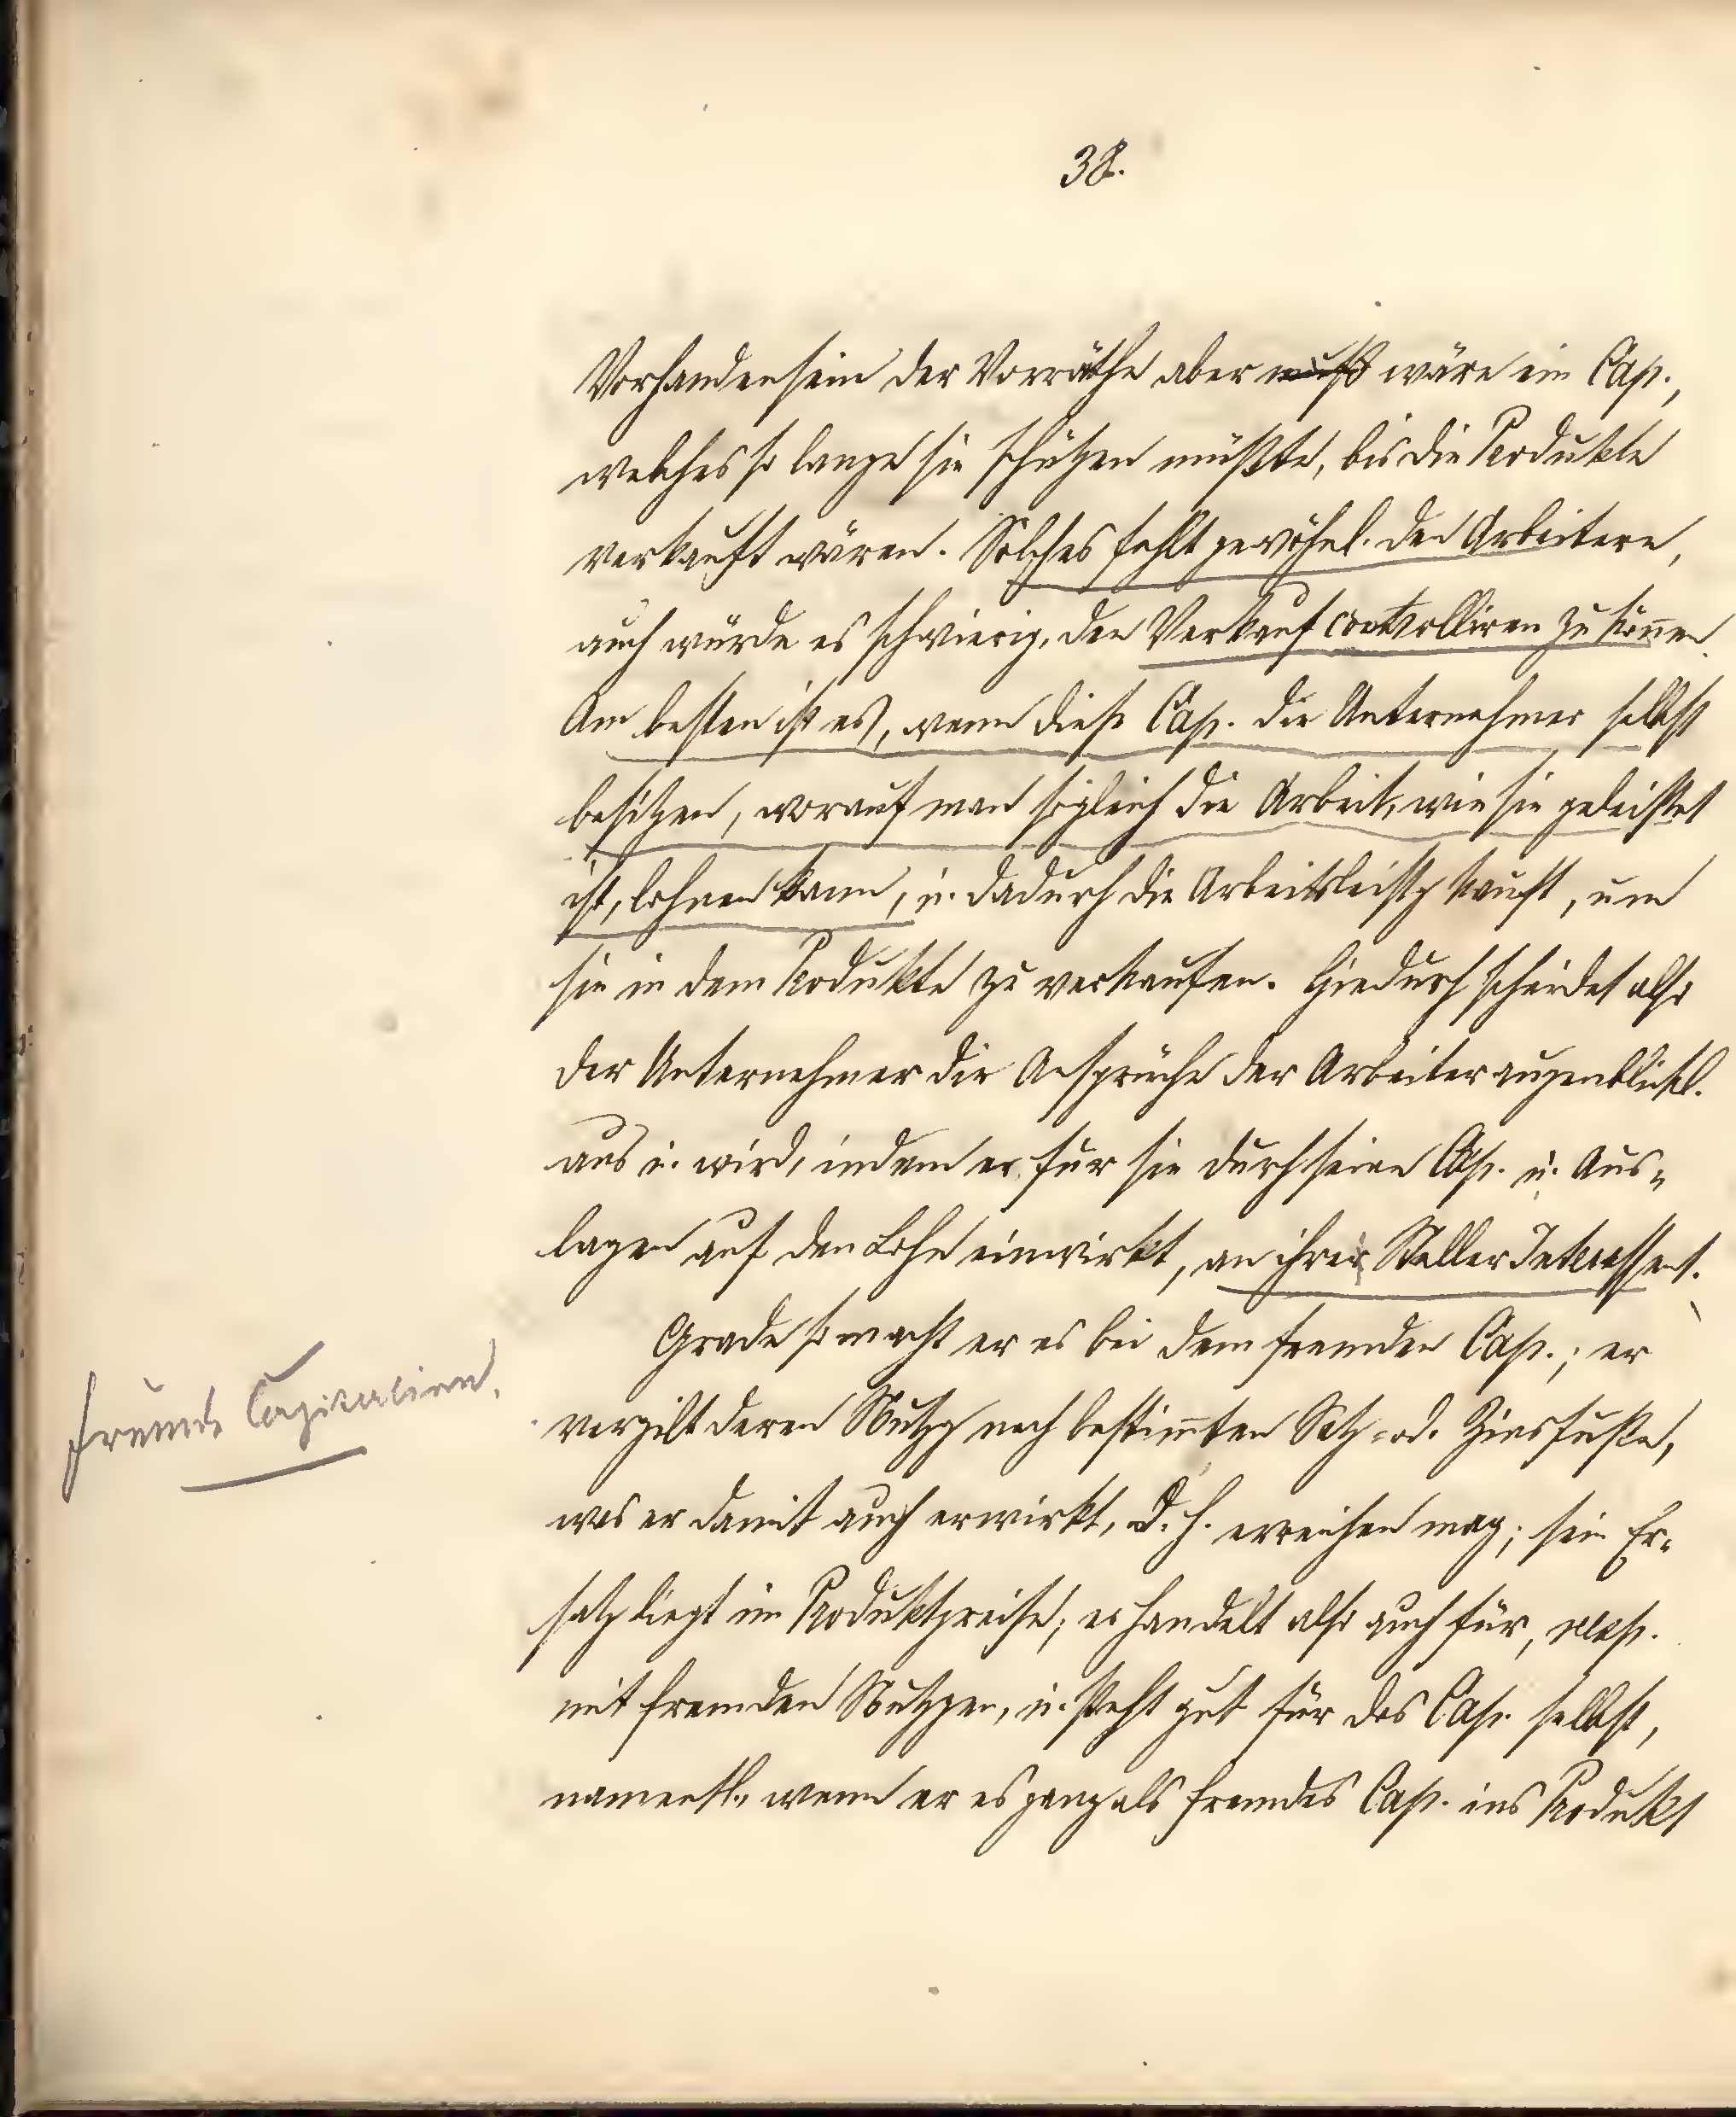 38.
Vorhandensein der Vorräthe aber muß wäre ein Cap.,
welches so lange sie schützen müßte, bis die Produkte
verkauft wären. Solches fehlt gewöhnl. den Arbeitern,
auch würde es schwierig, den Verkauf controlliren zu können.
Am besten ist es, wenn diese Cap. die Unternehmer selbst
besitzen, worauf man sogleich die Arbeit, wie sie geleistet
ist, lohnen kann, u. dadurch die Arbeitsleistg kauft, um
sie in dem Produkte zu verkaufen. Hiedurch scheidet also
der Unternehmer die Ansprüche der Arbeiter augenblickl.
aus u. wird, indem er für sie durch seine Cap. u. Aus-
lagen auf den Lohn einwirkt, an ihrer Stelle Interessent.
Grade so macht er es bei dem fremden Cap.; er
Fremde Capitalien.
vergilt deren Nutzg nach bestim̅ten Satz- od. Zinsfuße,
was er damit auch erwirkt, d. h. erreichen mag; sein Er-
satz liegt im Produktpreise; er handelt also auch für, resp.
mit fremden Nutzgen, u. steht gut für das Cap. selbst,
namentl., wenn er es ganz als fremdes Cap. ins Produkt